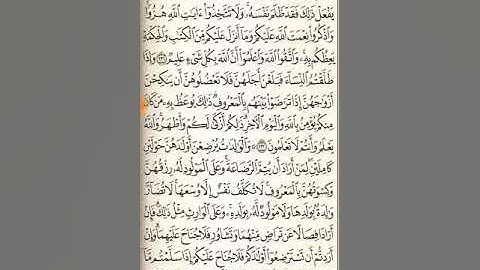 يَفْعَلْ ذَٰلِكَ فَقَدْ ظَلَمَ نَفْسَهُۥ ۚ وَلَا تَتَّخِذُوٓا۟ ءَايَٰتِ ٱللَّهِ هُزُوًا ۚ
وَٱذْكُرُوا۟ نِعْمَتَ ٱللَّهِ عَلَيْكُمْ وَمَآ أَنزَلَ عَلَيْكُم مِّنَ ٱلْكِتَٰبِ وَٱلْحِكْمَةِ
يَعِظُكُم بِهِۦ ۚ وَٱتَّقُوا۟ ٱللَّهَ وَٱعْلَمُوٓا۟ أَنَّ ٱللَّهَ بِكُلِّ شَىْءٍ عَلِيمٌ ٢٣١ وَإِذَا
طَلَّقْتُمُ ٱلنِّسَآءَ فَبَلَغْنَ أَجَلَهُنَّ فَلَا تَعْضُلُوهُنَّ أَن يَنكِحْنَ
أَزْوَٰجَهُنَّ إِذَا تَرَٰضَوْا۟ بَيْنَهُم بِٱلْمَعْرُوفِ ۗ ذَٰلِكَ يُوعَظُ بِهِۦ مَن كَانَ
مِنكُمْ يُؤْمِنُ بِٱللَّهِ وَٱلْيَوْمِ ٱلْءَاخِرِ ۗ ذَٰلِكُمْ أَزْكَىٰ لَكُمْ وَأَطْهَرُ ۗ وَٱللَّهُ
يَعْلَمُ وَأَنتُمْ لَا تَعْلَمُونَ ٢٣٢ ۞ وَٱلْوَٰلِدَٰتُ يُرْضِعْنَ أَوْلَٰدَهُنَّ حَوْلَيْنِ
كَامِلَيْنِ ۖ لِمَنْ أَرَادَ أَن يُتِمَّ ٱلرَّضَاعَةَ ۚ وَعَلَى ٱلْمَوْلُودِ لَهُۥ رِزْقُهُنَّ
وَكِسْوَتُهُنَّ بِٱلْمَعْرُوفِ ۚ لَا تُكَلَّفُ نَفْسٌ إِلَّا وُسْعَهَا ۚ لَا تُضَآرَّ
وَٰلِدَةٌۢ بِوَلَدِهَا وَلَا مَوْلُودٌ لَّهُۥ بِوَلَدِهِۦ ۚ وَعَلَى ٱلْوَارِثِ مِثْلُ ذَٰلِكَ ۗ فَإِنْ
أَرَادَا فِصَالًا عَن تَرَاضٍ مِّنْهُمَا وَتَشَاوُرٍ فَلَا جُنَاحَ عَلَيْهِمَا ۗ وَإِنْ
أَرَدتُّمْ أَن تَسْتَرْضِعُوٓا۟ أَوْلَٰدَكُمْ فَلَا جُنَاحَ عَلَيْكُمْ إِذَا سَلَّمْتُم مَّآ